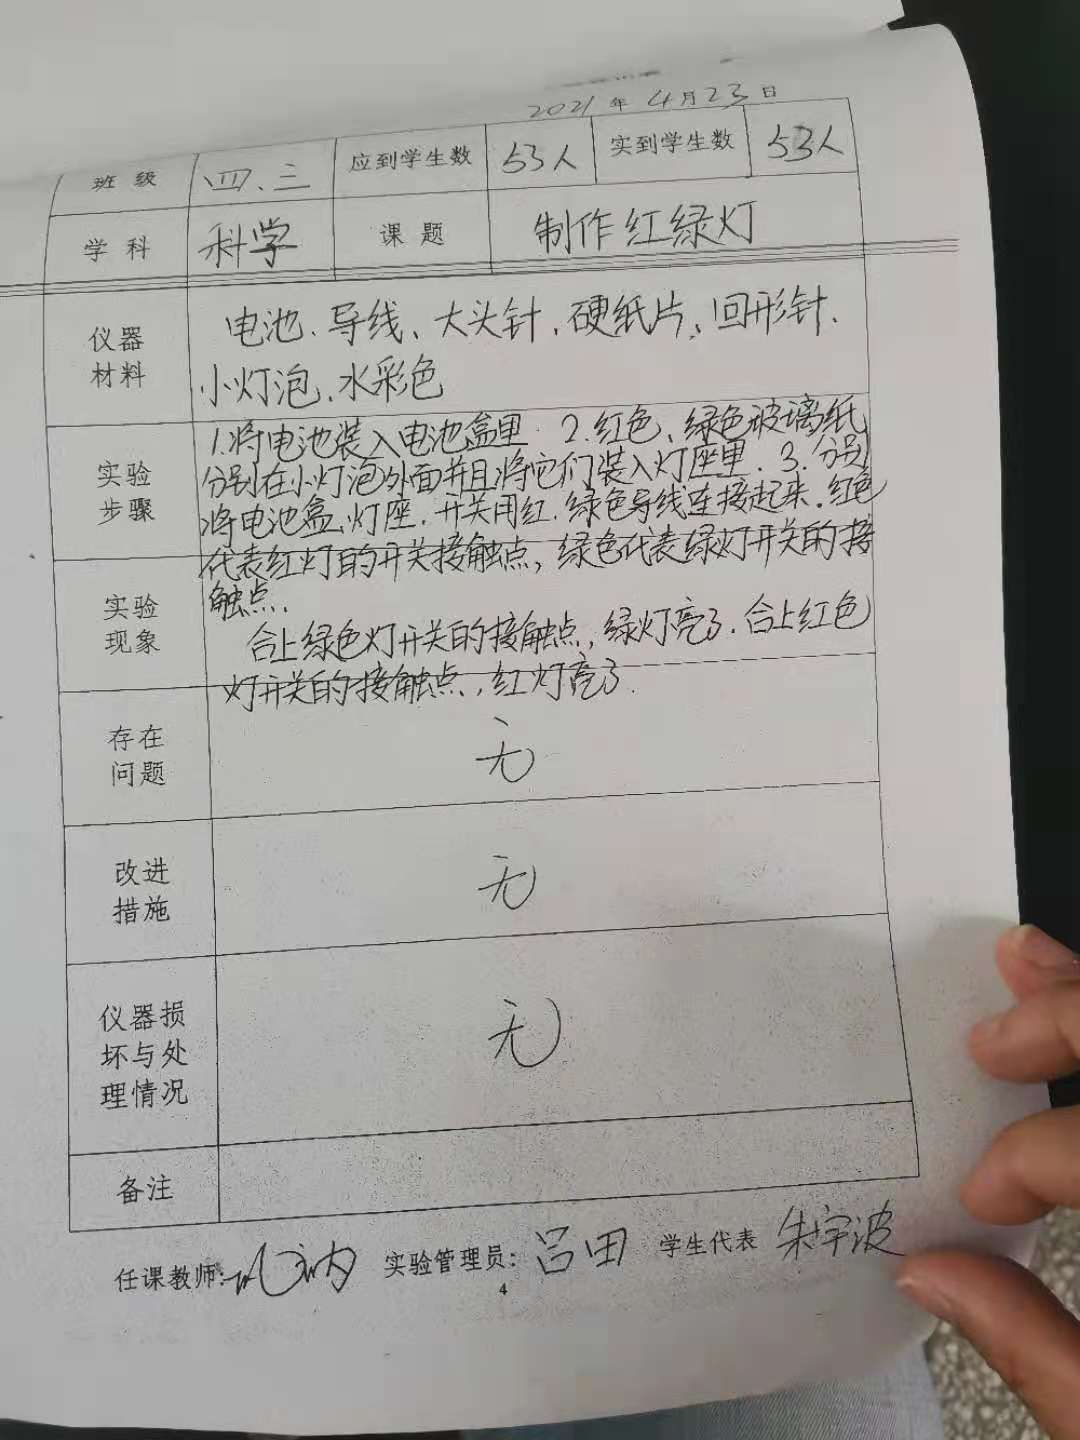 2021年4月23日
班级 四、三 应到学生数 53人 实到学生数 53人
学科 科学 课题 制作红绿灯
仪器 电池、导线、大头针、硬纸片、回形针、
材料 小灯泡、水彩色
1.将电池装入电池盒里. 2.红色、绿色玻璃纸
实验 分别在小灯泡外面并且将它们装入灯座里. 3.分别
步骤 将电池盒、灯座.开关用红.绿色导线连接起来.红色
代表红灯的开关接触点,绿色代表绿灯开关的接
实验 触点.
现象 合上绿色灯开关的接触点,绿灯亮了.合上红色
灯开关的接触点,红灯亮了.
存在
问题 无
改进
措施 无
仪器损
坏与处 无
理情况
备注
任课教师: 实验管理员:吕田 学生代表 朱宇波
4